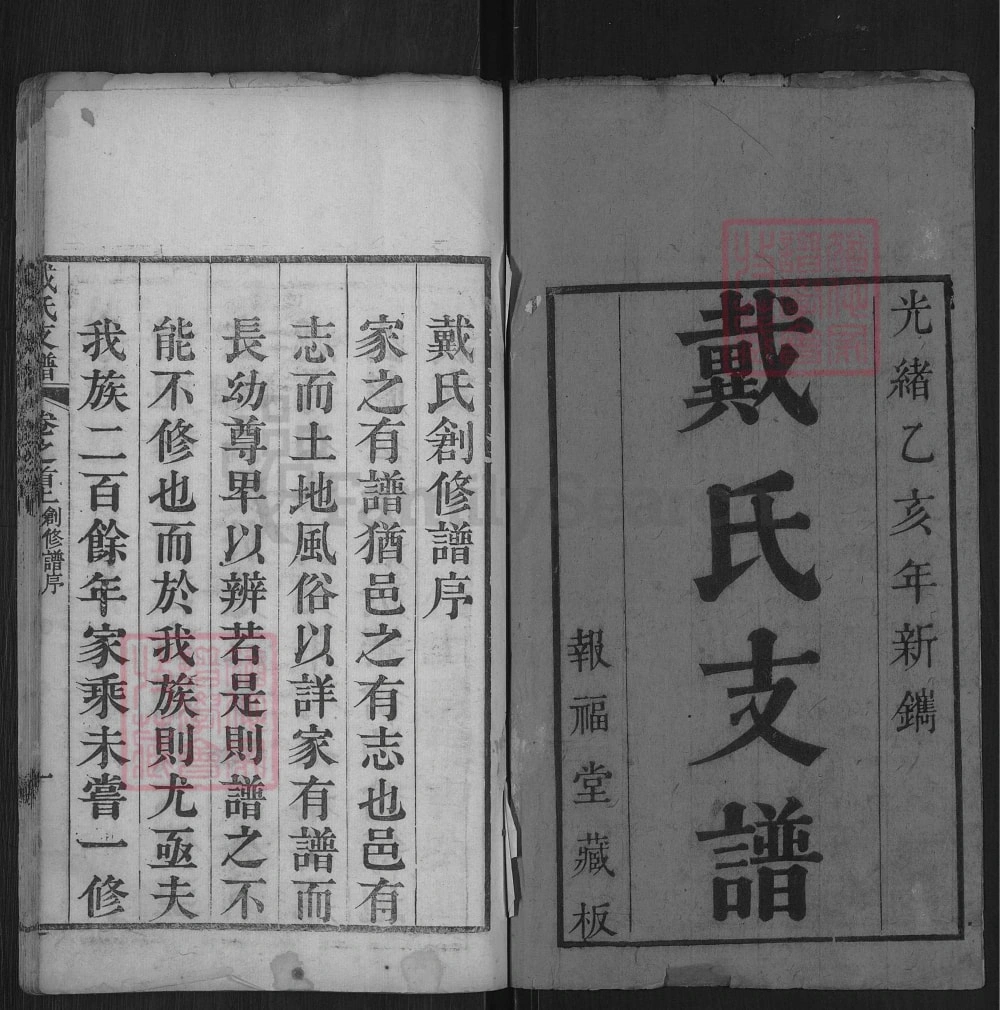 光緒乙亥年新鐫
戴氏支譜
報福堂藏板
戴氏創修譜序
家之有譜猶邑之有志也邑有
志而土地風俗以詳家有譜而
長幼尊卑以辨若是則譜之不
能不修也而於我族則尤亟夫
我族二百餘年家乘未嘗一修
戴氏支譜 卷之首上 創修譜序 一